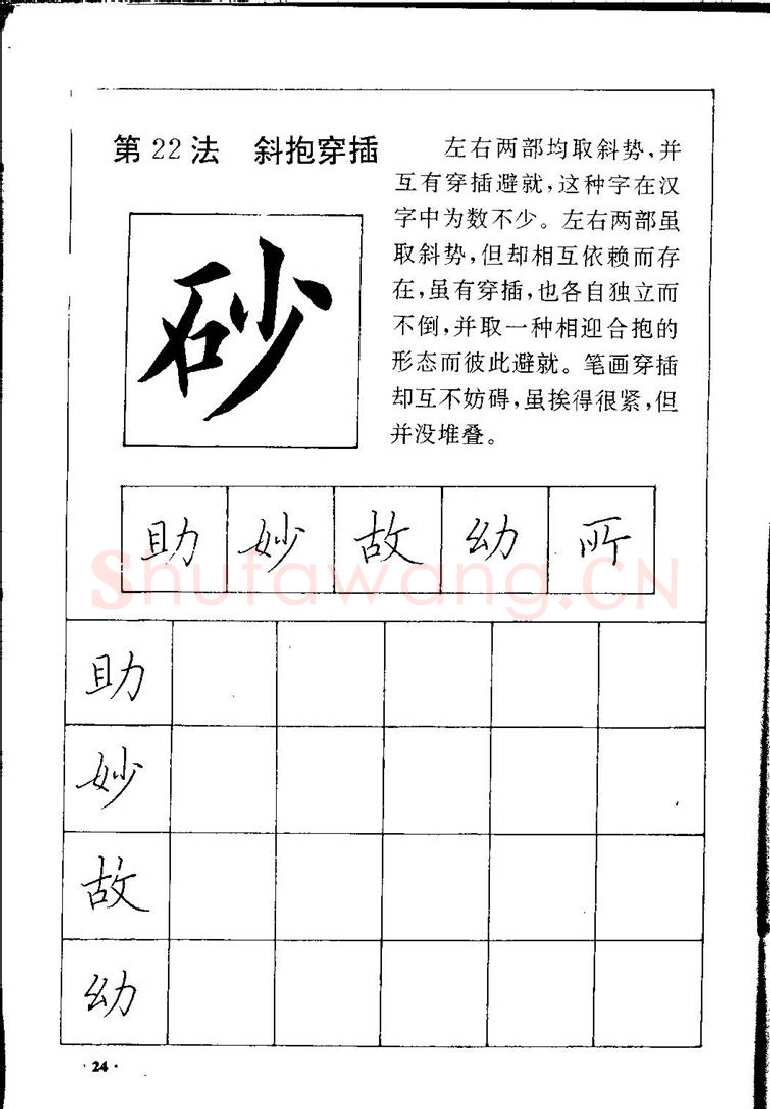 第22法 斜抱穿插
左右两部均取斜势,并
互有穿插避就,这种字在汉
字中为数不少。左右两部虽
取斜势,但却相互依赖而存
在,虽有穿插,也各自独立而
不倒,并取一种相迎合抱的
形态而彼此避就。笔画穿插
却互不妨碍,虽挨得很紧,但
并没堆叠。
砂
助 妙 故 幼 所
Shufawang.CN
助
妙
故
幼
·24·